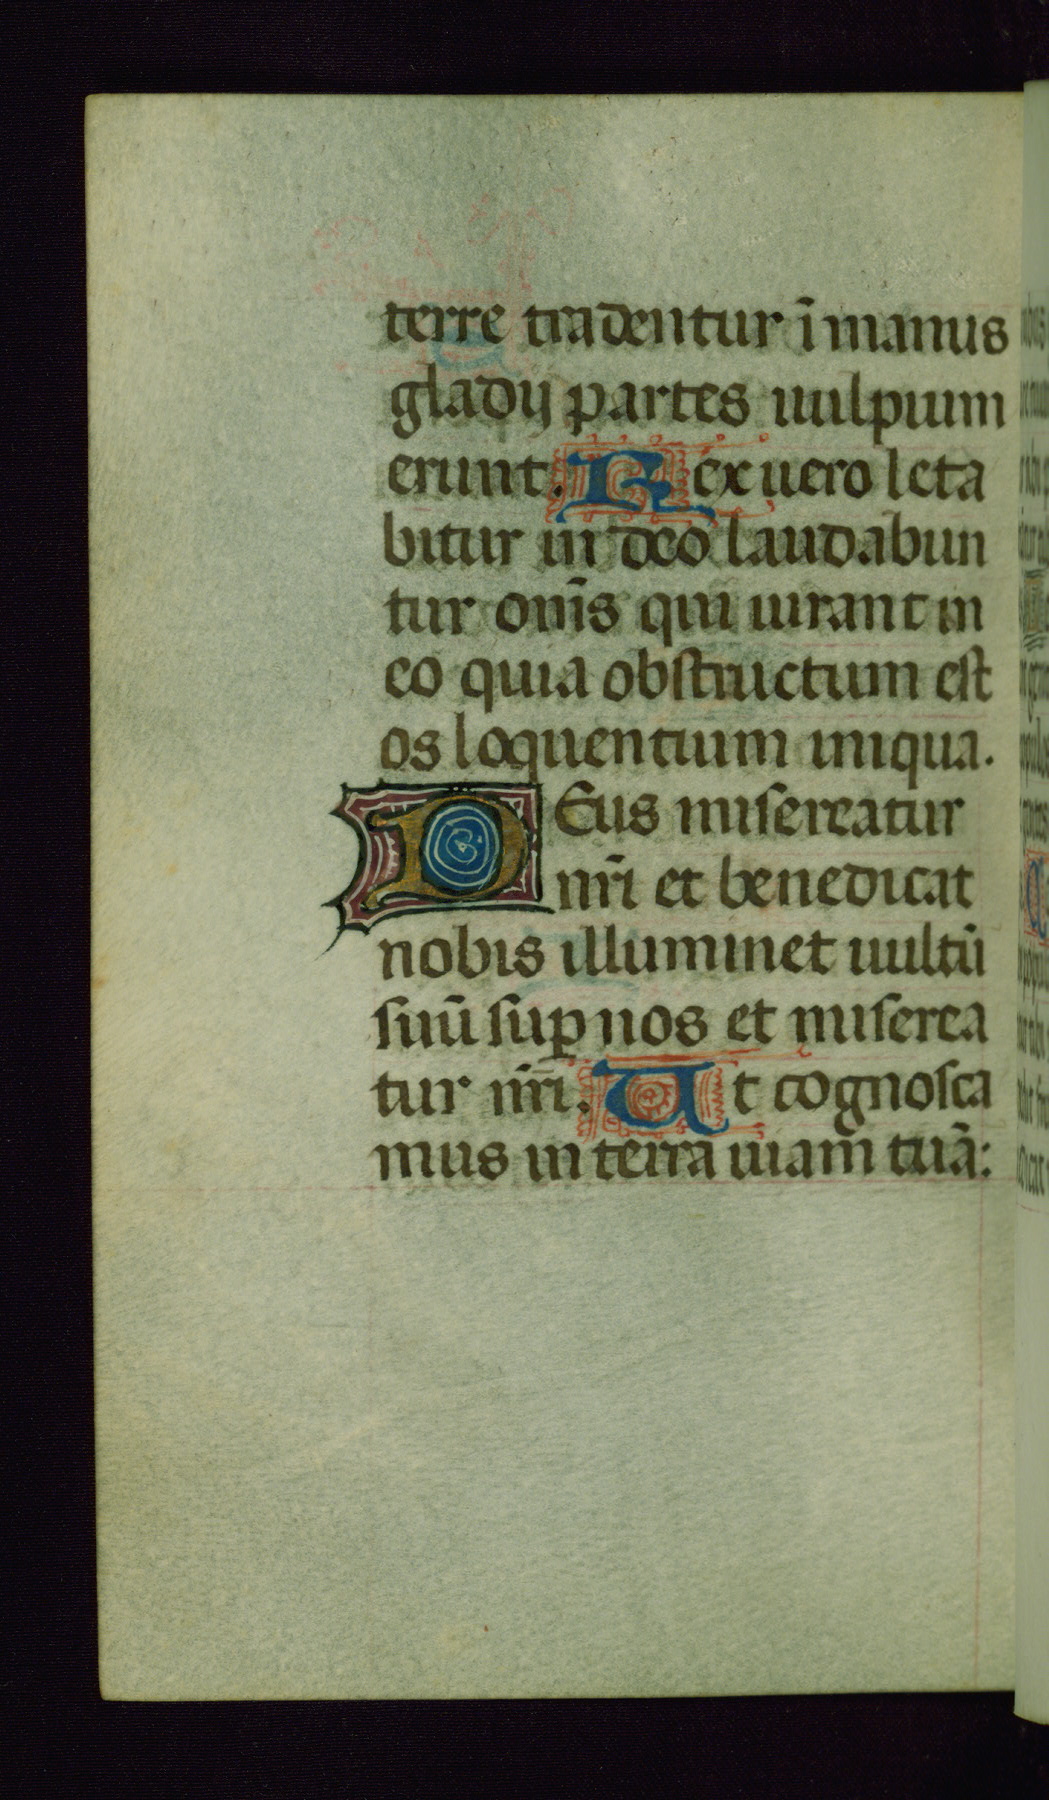 terre tradentur ī manus
gladij partes uulpium
erunt. Rex uero leta
bitur in deo laudabun
tur om̄s qui iurant in
eo quia obstructum est
os loquentium iniqua.
DEus misereatur
nr̄i et benedicat
nobis illuminet uultū
suū sup nos et miserea
tur nr̄i. Ut cognosca
mus in terra uiam tuā: